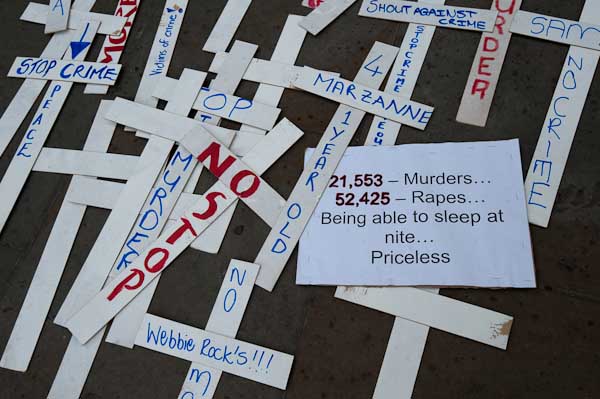 SHOUT AGAINST CRIME
MURDER
MURDER
SAM
Victims of crime
STOP CRIME
STOP CRIME
NO CRIME
PEACE
MARZANNE
4
1 YEAR OLD
TOP
MURDER
NO
STOP
21,553 – Murders...
52,425 – Rapes...
Being able to sleep at
nite...
Priceless
NO
Webbie Rock's!!!